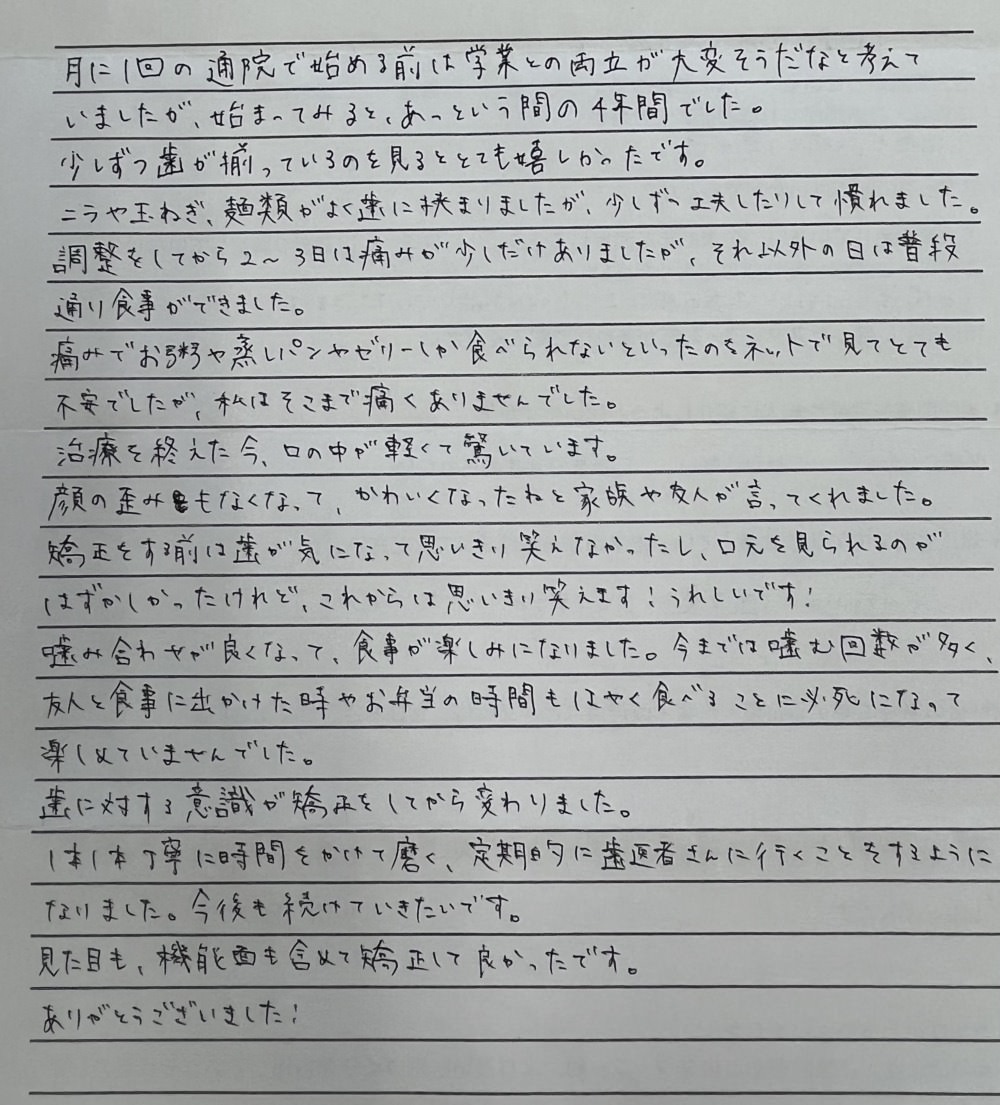 月に1回の通院で始める前は学業との両立が大変そうだなと考えて
いましたが、始まってみると、あっという間の4年間でした。
少しずつ歯が揃っているのを見るととても嬉しかったです。
ニラや玉ねぎ、麺類がよく歯に挟まりましたが、少しずつ工夫したりして慣れました。
調整をしてから2〜3日は痛みが少しだけありましたが、それ以外の日は普段
通り食事ができました。
痛みでお粥や蒸しパンやゼリーしか食べられないといったのをネットで見てとても
不安でしたが、私はそこまで痛くありませんでした。
治療を終えた今、口の中が軽くて驚いています。
顔の歪みもなくなって、かわいくなったねと家族や友人が言ってくれました。
矯正をする前は歯が気になって思いきり笑えなかったし、口元を見られるのが
はずかしかったけれど、これからは思いきり笑えます!うれしいです!
噛み合わせが良くなって、食事が楽しみになりました。今までは噛む回数が多く、
友人と食事に出かけた時やお弁当の時間もはやく食べることに必死になって
楽しめていませんでした。
歯に対する意識が矯正をしてから変わりました。
1本1本丁寧に時間をかけて磨く、定期的に歯医者さんに行くことをするように
なりました。今後も続けていきたいです。
見た目も、機能面も含めて矯正して良かったです。
ありがとうございました!